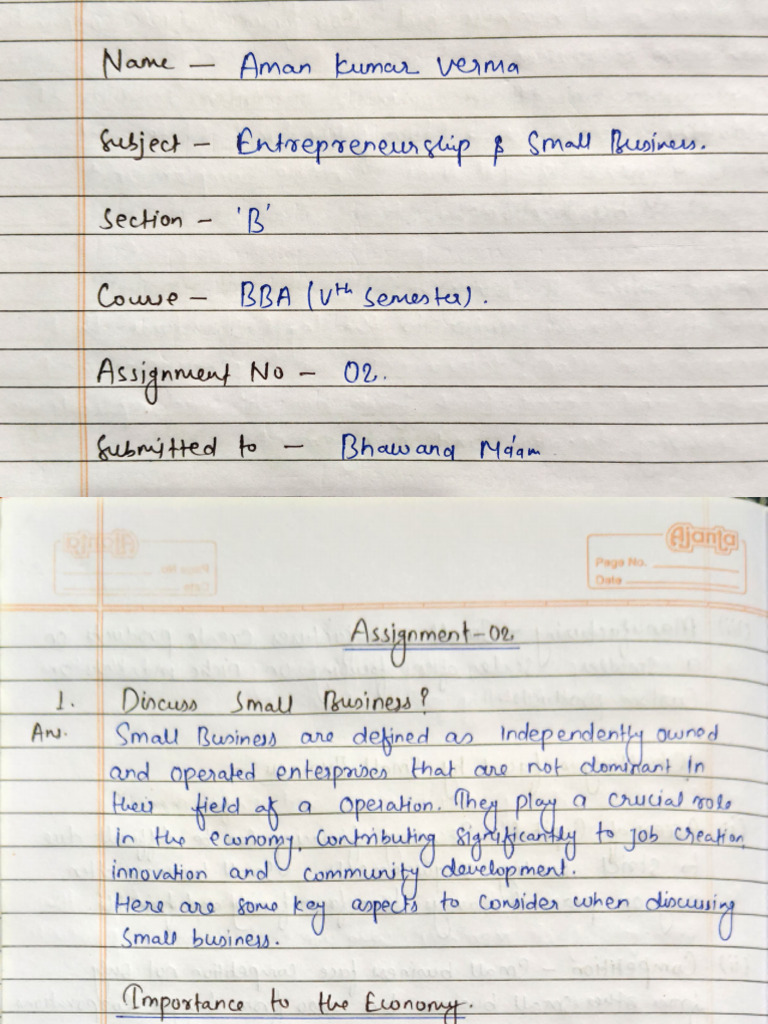 Name — Aman Kumar Verma
Subject — Entrepreneurship & Small Business.
Section — 'B'
Course — BBA (Vth Semester).
Assignment No — 02.
Submitted to — Bhawana Ma'am
Ajanta
Page No.
Date
Assignment-02
1. Discuss Small Business?
Ans. Small Business are defined as independently owned
and operated enterprises that are not dominant in
their field of a operation. They play a crucial role
in the economy, contributing significantly to job creation,
innovation and community development.
Here are some key aspects to consider when discussing
Small business.
Importance to the Economy.